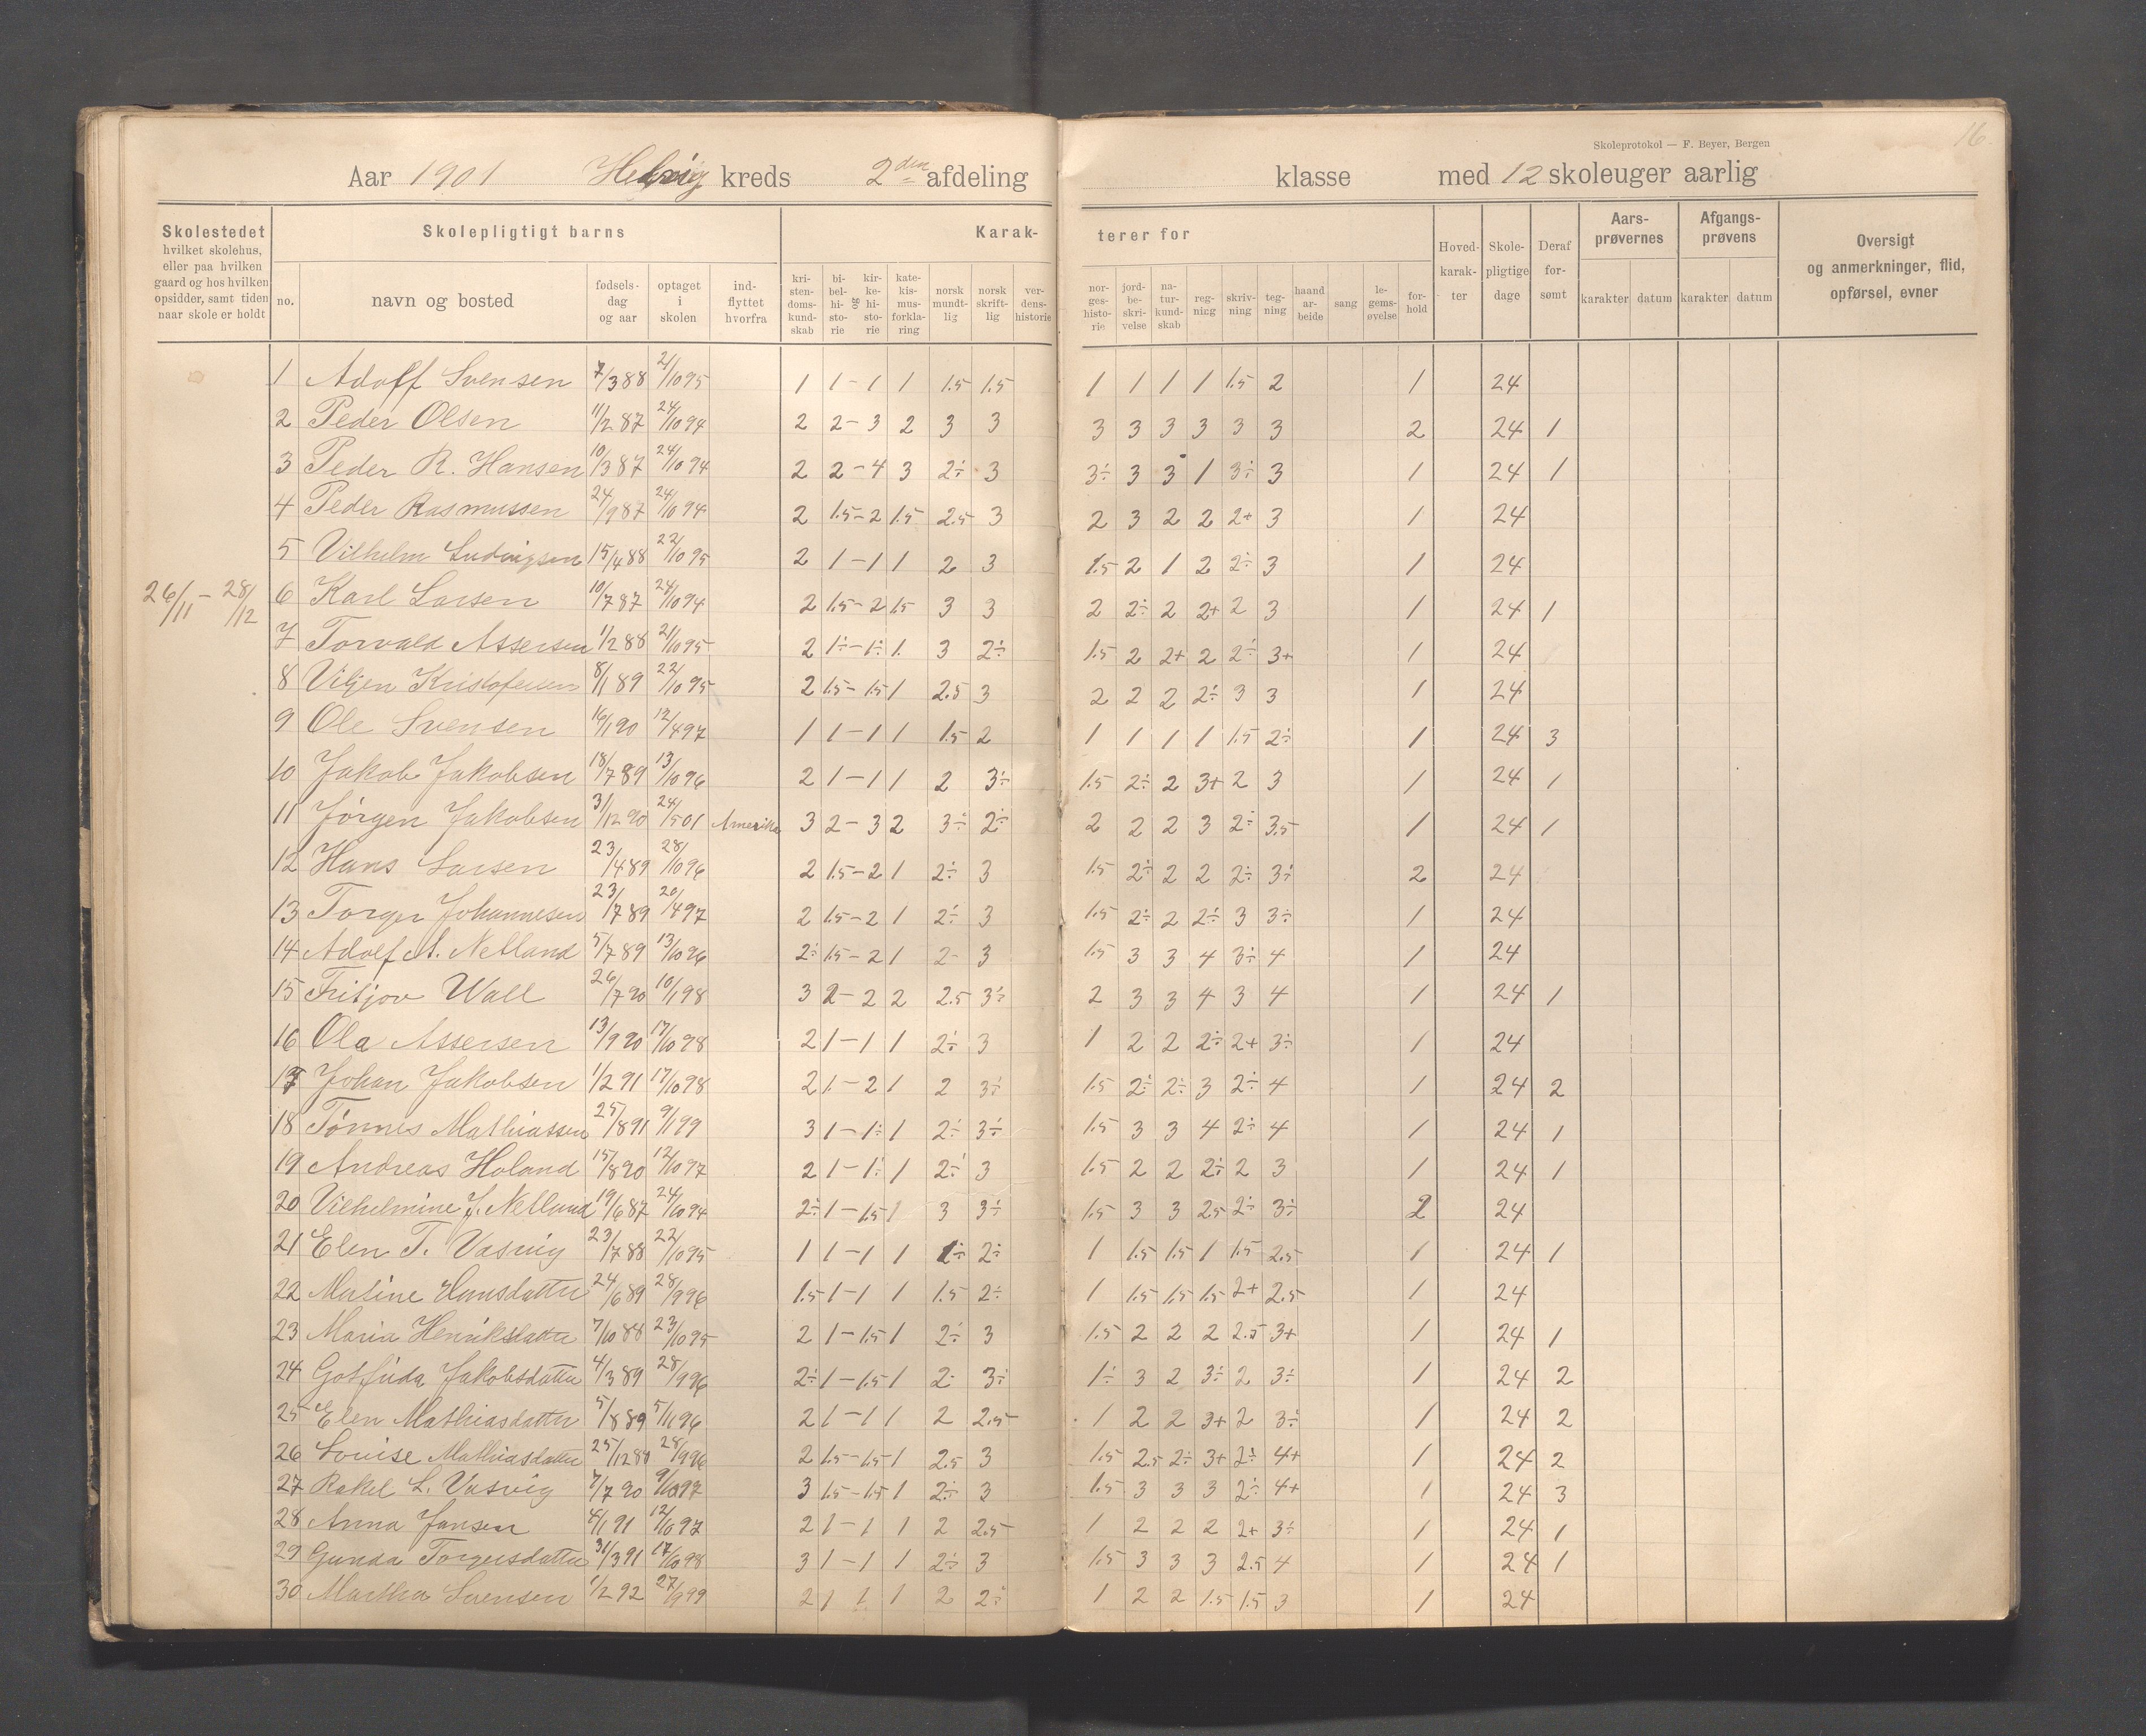 16.
Skoleprotokol — F. Beyer, Bergen
Aar 1901 kreds 2den afdeling klasse med 12 skoleuger aarlig
Skolestedet hvilket skolehus, eller paa hvilken gaard og hos hvilken opsidder, samt tiden naar skole er holdt
Skolepligtigt barns
no. navn og bosted fødselsdag og aar optaget i skolen indflyttet hvorfra
Karakterer for
kristendomskundskab bibelhistorie og kirkehistorie katekismusforklaring norsk mundtlig norsk skriftlig verdenshistorie norgeshistorie jordbeskrivelse naturkundskab regning skrivning tegning haandarbeide sang legemsøvelse forhold
Hovedkarakter Skolepligtige dage Deraf forsømt
Aarsprøvernes karakter datum
Afgangsprøvens karakter datum
Oversigt og anmerkninger, flid, opførsel, evner
26/11 – 28/12
1 Adolf Svensen 7/3 88 21/10 95 1 1 – 1 1 1.5 1.5 1 1 1 1 1.5 2 1 24
2 Peder Olsen 11/2 87 24/10 94 2 2 – 3 2 3 3 3 3 3 3 3 3 2 24 1
3 Peder R. Hansen 10/3 87 24/10 94 2 2 – 4 3 2÷ 3 3÷ 3 3 1 3÷ 3 1 24 1
4 Peder Rasmussen 24/9 87 24/10 94 2 1.5 – 2 1.5 2.5 3 2 3 2 2 2+ 3 1 24
5 Vilhelm Ludvigsen 15/4 88 22/10 95 2 1 – 1 1 2 3 1.5 2 1 2 2÷ 3 1 24
6 Karl Larsen 10/7 87 24/10 94 2 1.5 – 2 1.5 3 3 2 2÷ 2 2+ 2 3 1 24 1
7 Torvald Assersen 1/2 88 21/10 95 2 1÷ – 1÷ 1. 3 2÷ 1.5 2 2+ 2 2÷ 3+ 1 24
8 Viljen Kristofersen 8/1 89 22/10 95 2 1.5 – 1.5 1 2.5 3 2 2 2 2÷ 3 3 1 24
9 Ole Svensen 16/1 90 12/4 97 1 1 – 1 1 1.5 2 1 1 1 1 1.5 2÷ 1 24 3
10 Jakob Jakobsen 18/7 89 13/10 96 2 1 – 1 1 2 3÷ 1.5 2÷ 2 3+ 2 3 1 24 1
11 Jørgen Jakobsen 31/12 90 24/5 01 Amerika 3 2 – 3 2 3÷ 2÷ 2 2 2 3 2÷ 3.5 1 24 1
12 Hans Larsen 23/4 89 28/10 96 2 1.5 – 2 1 2÷ 3 1.5 2÷ 2 2 2÷ 3÷ 2 24
13 Torger Johannesen 23/7 89 20/4 97 2 1.5 – 2 1 2÷ 3 1.5 2÷ 2 2÷ 3 3÷ 1 24
14 Adolf A. Netland 5/7 89 13/10 96 2÷ 1.5 – 2 1 2- 3 1.5 3 3 4 3÷ 4 1 24
15 Fritjov Wall 26/7 90 10/1 98 3 2 – 2 2 2.5 3÷ 2 3 3 4 3 4 1 24 1
16 Ola Assersen 13/9 90 17/10 98 2 1 – 1 1 2÷ 3 1 2 2 2÷ 2+ 3÷ 1 24
17 Johan Jakobsen 1/2 91 17/10 98 2 1. – 2 1 2 3÷ 1.5 2÷ 2÷ 3 2÷ 4 1 24 2
18 Tønnes Mathiassen 25/8 91 9/1 99 3 1 – 1÷ 1 2÷ 3÷ 1.5 3 3 4 2÷ 4 1 24 1
19 Andreas Holand 15/8 90 12/10 97 2 1 – 1÷ 1 2÷ 3 1.5 2 2 2÷ 2 3 1 24 1
20 Vilhelmine J. Netland 19/6 87 24/10 94 2÷ 1 – 1.5 1 3 3÷ 1.5 3 3 2.5 2÷ 3÷ 2 24
21 Elen T. Vasvig 23/7 88 22/10 95 1 1 – 1 1 1÷ 2÷ 1 1.5 1.5 1 1.5 2.5 1 24 1
22 Matine Hansdatter 24/6 89 28/9 96 1.5 1 – 1 1 1.5 2÷ 1 1.5 1.5 1.5 2+ 2.5 1 24
23 Maria Henriksdatter 7/10 88 23/10 95 2 1 – 1.5 1 2÷ 3 1.5 2 2 2 2.5 3+ 1 24 1
24 Gotfrida Jakobsdatter 4/3 89 28/9 96 2÷ 1 – 1.5 1 2- 3÷ 1÷ 3 2 3÷ 2 3÷ 1 24 2
25 Elen Mathiasdatter 5/8 89 5/11 96 2 1 – 1 1 2 2.5 1 2 2 3+ 2 3÷ 1 24 2
26 Lovise Mathiasdatter 25/12 88 28/9 96 2 1.5 – 1.5 1 2.5 3 1.5 2.5 2÷ 3+ 2÷ 4+ 1 24 2
27 Rakel L. Vasvig 7/7 90 9/10 97 3 1.5 – 1.5 1 2÷ 3 1.5 3 3 3 2÷ 4+ 1 24 3
28 Anna Jansen 4/1 91 12/10 97 2 1 – 1 1 2 2.5 1 2 2 2 2+ 3÷ 1 24 1
29 Gunda Torgersdatter 31/3 91 17/10 98 3 1 – 1 1 2÷ 3 1.5 3 3 3 2.5 4 1 24 1
30 Martha Svensen 1/2 92 27/9 99 2 1 1 1 2 2÷ 1 2 2 1.5 1.5 3 1 24